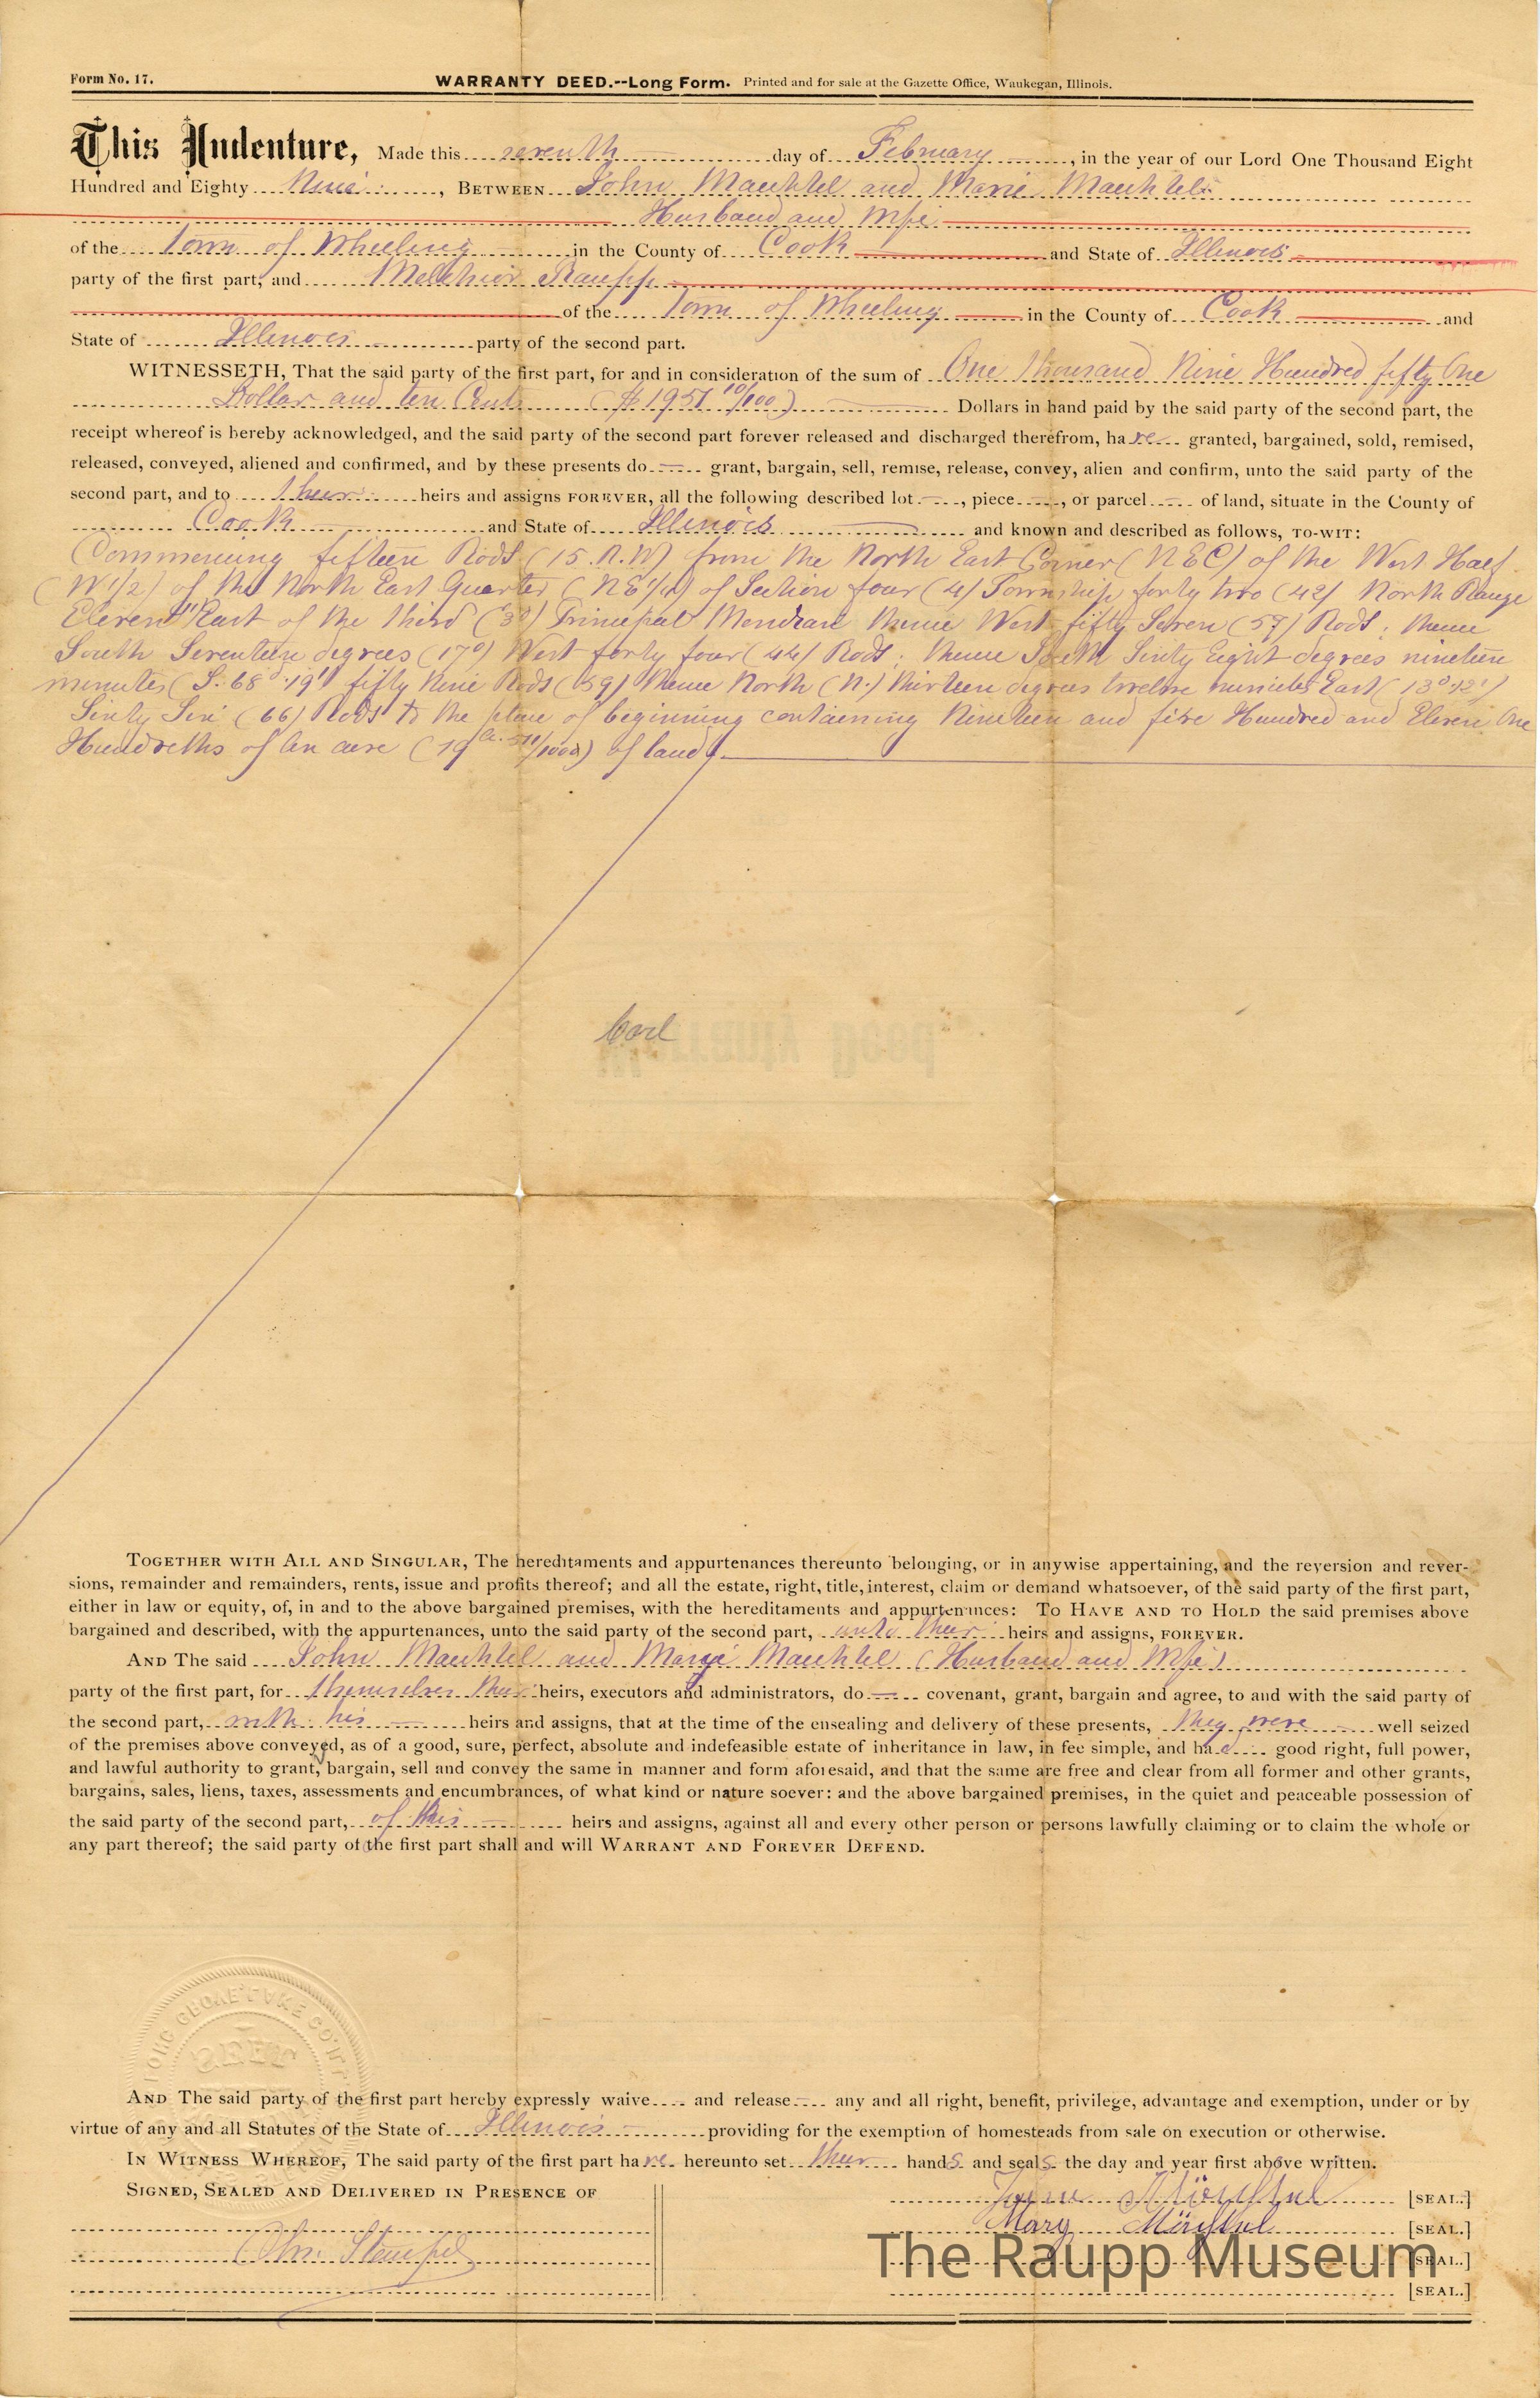 Form No. 17.
WARRANTY DEED.--Long Form. Printed and for sale at the Gazette Office, Waukegan, Illinois.
This Indenture, Made this seventh day of February, in the year of our Lord One Thousand Eight
Hundred and Eighty Nine, BETWEEN John Maechtel and Marie Maechtel
Husband and Wife
of the Town of Wheeling in the County of Cook and State of Illinois
party of the first part, and Melchior Raupp
of the Town of Wheeling in the County of Cook and
State of Illinois party of the second part.
WITNESSETH, That the said party of the first part, for and in consideration of the sum of One Thousand Nine Hundred fifty One
Dollar and ten Cents ($1951 10/100) Dollars in hand paid by the said party of the second part, the
receipt whereof is hereby acknowledged, and the said party of the second part forever released and discharged therefrom, have granted, bargained, sold, remised,
released, conveyed, aliened and confirmed, and by these presents do grant, bargain, sell, remise, release, convey, alien and confirm, unto the said party of the
second part, and to their heirs and assigns FOREVER, all the following described lot, piece, or parcel of land, situate in the County of
Cook and State of Illinois and known and described as follows, TO-WIT:
Commencing fifteen Rods (15. R. W) from the North East Corner (N E C) of the West Half
(W 1/2) of the North East Quarter (N E 1/4) of Section four (4) Township forty two (42) North Range
Eleven East of the third (3d) Principal Meridian thence West fifty Seven (57) Rods; thence
South Seventeen degrees (17°) West forty four (44) Rods; thence South Sixty Eight degrees nineteen
minutes (S. 68° 19') fifty Nine Rods (59) thence North (N.) thirteen degrees twelve minutes East (13° 12')
Sixty Six (66) Rods to the place of beginning containing Nineteen and five Hundred and Eleven One
Hundreths of an acre (19 511/1000) of land
Carl
Warranty Deed
TOGETHER WITH ALL AND SINGULAR, The hereditaments and appurtenances thereunto belonging, or in anywise appertaining, and the reversion and rever-
sions, remainder and remainders, rents, issue and profits thereof; and all the estate, right, title, interest, claim or demand whatsoever, of the said party of the first part,
either in law or equity, of, in and to the above bargained premises, with the hereditaments and appurtenances: TO HAVE AND TO HOLD the said premises above
bargained and described, with the appurtenances, unto the said party of the second part, unto their heirs and assigns, FOREVER.
AND The said John Maechtel and Marye Maechtel (Husband and Wife)
party of the first part, for themselves their heirs, executors and administrators, do covenant, grant, bargain and agree, to and with the said party of
the second part, with his heirs and assigns, that at the time of the ensealing and delivery of these presents, they were well seized
of the premises above conveyed, as of a good, sure, perfect, absolute and indefeasible estate of inheritance in law, in fee simple, and had good right, full power,
and lawful authority to grant, bargain, sell and convey the same in manner and form aforesaid, and that the same are free and clear from all former and other grants,
bargains, sales, liens, taxes, assessments and encumbrances, of what kind or nature soever: and the above bargained premises, in the quiet and peaceable possession of
the said party of the second part, of his heirs and assigns, against all and every other person or persons lawfully claiming or to claim the whole or
any part thereof; the said party of the first part shall and will WARRANT AND FOREVER DEFEND.
LONG GROVE, LAKE CO.
AND The said party of the first part hereby expressly waive and release any and all right, benefit, privilege, advantage and exemption, under or by
virtue of any and all Statutes of the State of Illinois providing for the exemption of homesteads from sale on execution or otherwise.
IN WITNESS WHEREOF, The said party of the first part have hereunto set their hands and seals the day and year first above written.
SIGNED, SEALED AND DELIVERED IN PRESENCE OF
[SEAL.]
Mary [SEAL.]
Stempel [SEAL.]
[SEAL.]
The Raupp Museum